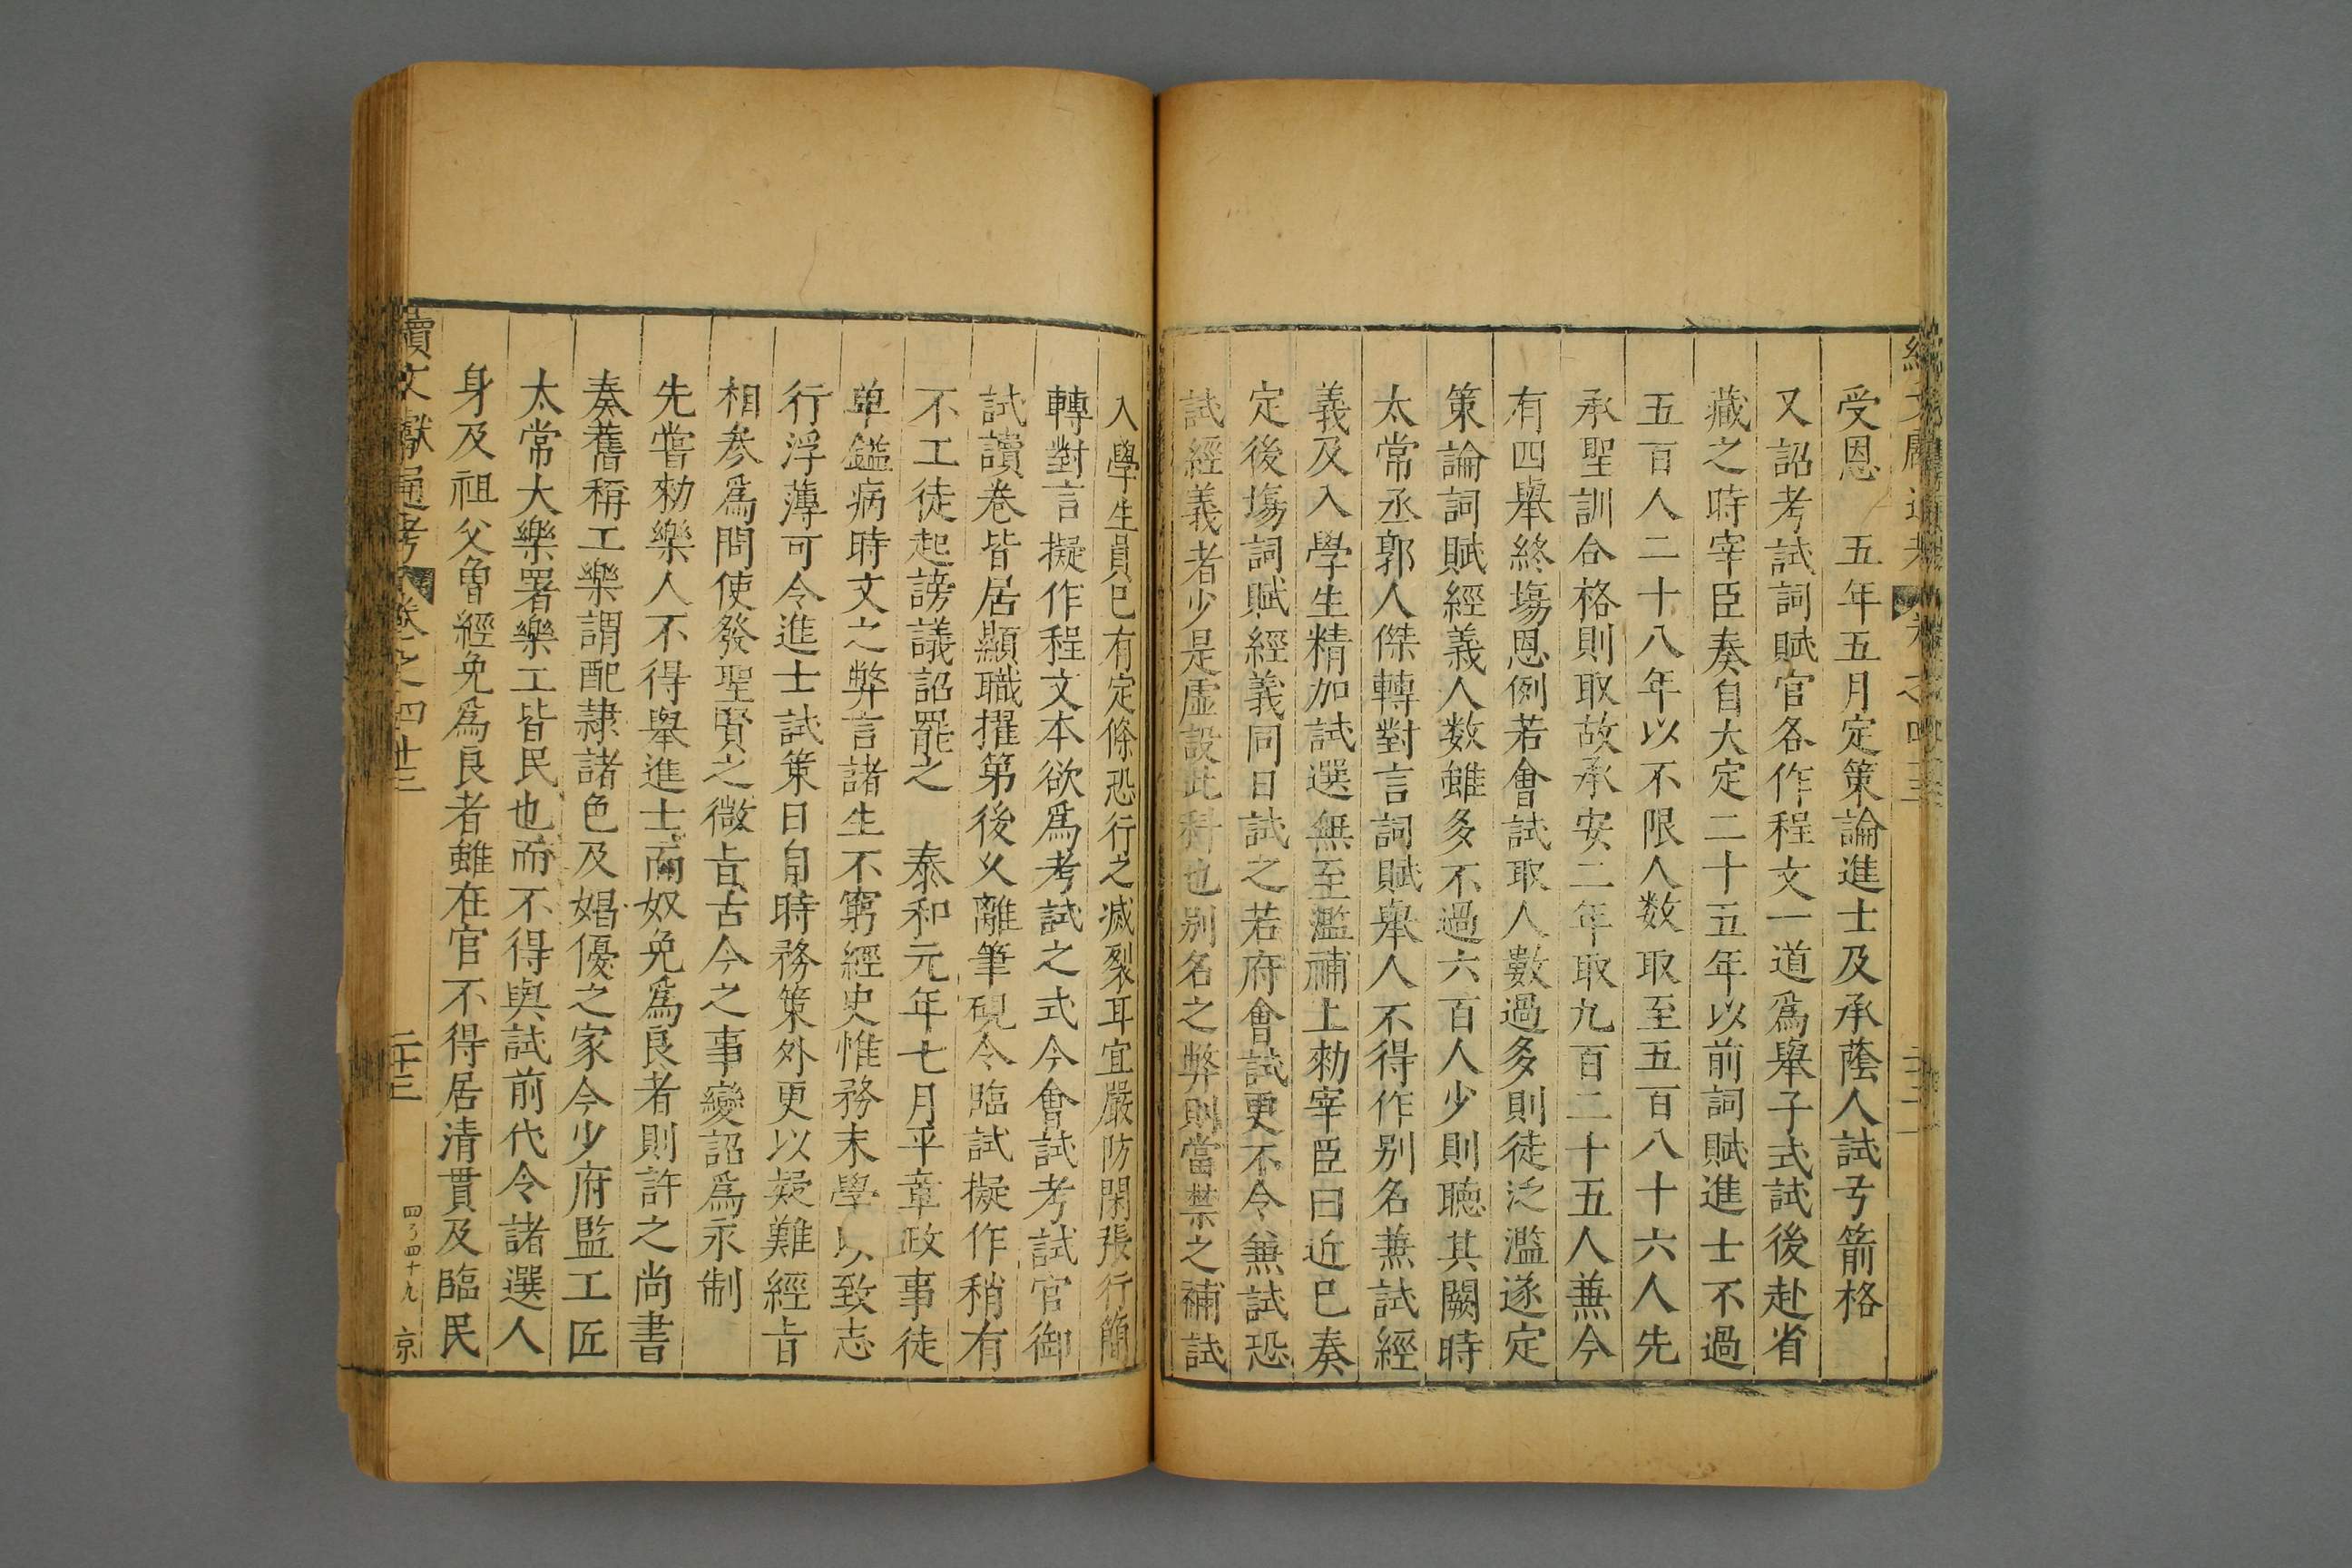 受恩　五年五月定策論進士及承蔭人試弓箭格
又詔考試詞賦官各作程文一道爲舉子式試後赴省
藏之時宰臣奏自大定二十五年以前詞賦進士不過
五百人二十八年以不限人数取至五百八十六人先
承聖訓合格則取故承安二年取九百二十五人兼今
有四舉終塲恩例若會試取人數過多則徒泛濫遂定
策論詞賦經義人数雖多不過六百人少則聽其闕時
太常丞郭人傑轉對言詞賦舉人不得作别名兼試經
義及入學生精加試選無至濫補上勅宰臣曰近已奏
定後塲詞賦經義同日試之若府會試更不令兼試恐
試經義者少是虛設此科也别名之弊則當禁之補試
入學生員已有定條恐行之滅裂耳宜嚴防閑張行簡
轉對言擬作程文本欲爲考試之式今會試考試官御
試讀卷皆居顯職擢第後乂離筆硯今臨試擬作稍有
不工徒起謗議詔罷之　泰和元年七月平章政事徒
單鎰病時文之弊言諸生不窮經史惟務末學以致志
行浮薄可令進士試策日自時務策外更以疑難經㫖
相参爲問使發聖賢之微㫖古今之事變詔爲永制
先嘗勅樂人不得舉進士而奴免爲良者則許之尚書
奏舊稱工樂謂配隷諸色及娼優之家今少府監工匠
太常大樂署樂工皆民也而不得與試前代令諸選人
身及祖父曾經免爲良者雖在官不得居清貫及臨民
續文獻通考　卷之四十三　二十三　四ろ四十九　京